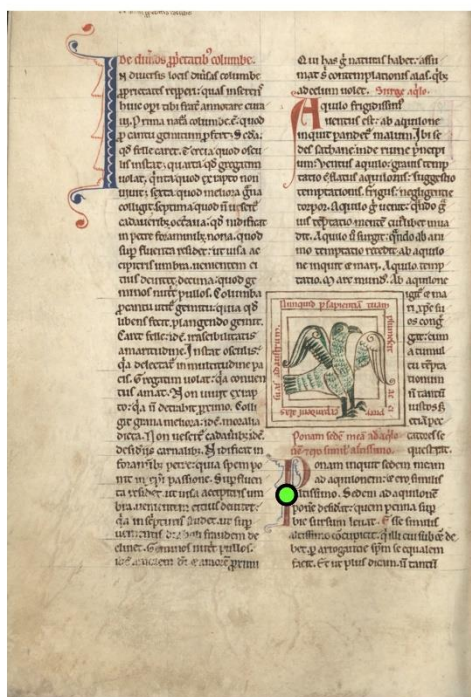 De diuersis proprietatibus columbe.
In diuersis locis diuersas columbe
proprietates repperi: quas inserens
huic operi tibi
Prima natura columbe est quod
pro cantu gemitum profert. Secunda
quod felle caret. Tercia quod oscu
lis instat. quarta quod gregatim
uolat. quinta quod ex rapto non
uiuit. sexta quod meliora grana
colligit. septima quod non uescitur
cadaueribus. octaua. quod nidificat
in petre foraminibus. nona. quod
super fluenta residet: ut uisa ac
cipitris umbra uenientem ci
tius deuitet. decima. quod ge
minos nutrit pullos. Columba
pro cantu utitur gemitu: quia quod
libens fecit. plangendo gemit.
Caret felle: idest irascibilitatis
amaritudine. Instat osculis:
quia delectatur in multitudine pa
cis. Gregatim uolat: quia conuen
tus amat. Non uiuit ex rap
to: quia non detrahit proximo. Colli
git grana meliora: idest moralia
dicta. Non uescitur cadaueribus: idest
desideriis carnalibus. Nidificat in
foraminibus petre: quia spem po
nit in christi passione. Super fluen
ta residet: ut uisa accipitris um
bra uenientem citius deuitet:
quia in scripturis studet: ut super
uenientis diaboli fraudem de
clinet. Geminos nutrit pullos.
idest amorem dei et amorem proximi
Qui has ergo naturas habet: assu
mat sibi contemplationis alas. quibus
ad celum uolet. Surge aquilo.
Aquilo frigidissimus
uentus est: ab aquilone
inquit pandetur malum. Ibi se
des sathane inde ruine princi
pium. Ventus aquilo: grauis temp
tatio. Flatus aquilonis: suggestio
temptationis. frigus: negligentie
torpor. Aquilo ergo uenit: quando gra
uis temptatio mentem cuiuslibet inua
dit. Aquilo surgit: quando ab ani
mo temptatio recedit. ab aquilo
ne inquit et mari. Aquilo temp
tatio. Mare mundus. Ab aquilone
igitur et ma
ri christus suos
congre
gat: cum
a cumul
tu tempta
tionum
non tantum
iustos sed
etiam pec
catores se
questrat.
Nunquid per sapientiam tuam plumescit accipiter expandens alas suas ad austrum
Ponam sedem meam ad aquilo
nem et ero similis altissimo.
Ponam inquit sedem meam
ad aquilonem: et ero similis
altissimo. Sedem ad aquilonem
ponere desiderat: quem penna super
bie sursum leuat. Esse similis
altissimo concupiscit: qui illi cui subesse de
bet. per arrogantie spiritum se equalem
facit. Et ut plus dicam. non tantum